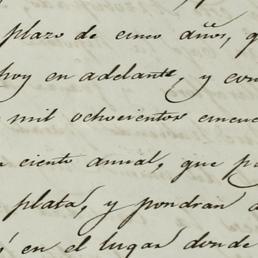 plazo de cinco años, q
hoy en adelante, y con
mil ochocientos cincue
ciento anual, que p
plata, y pondran
en el lugar donde